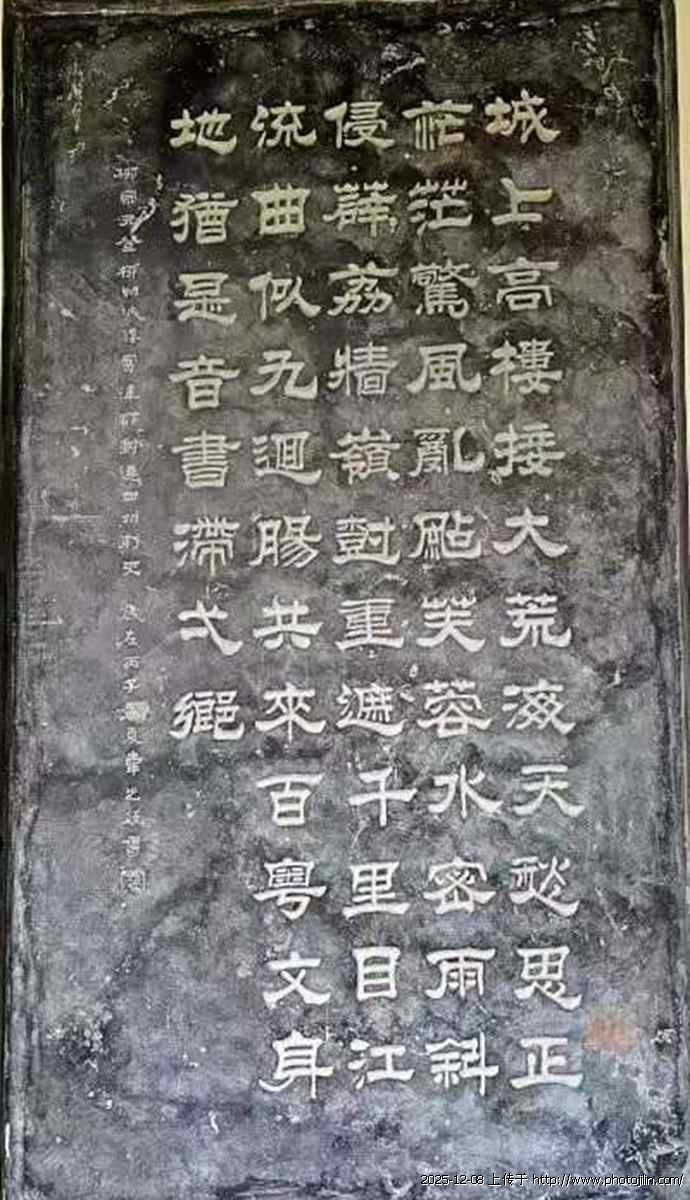 城上高樓接大荒海天愁思正
茫茫驚風亂颭芙蓉水密雨斜
侵薜荔牆嶺尌重遮千里目江
流曲似九迴腸共來百粵文身
地猶是音書滯弌鄉
柳宗元登柳州城樓寄漳汀封連四州刺史 歲在丙子夏書
2025-12-08 上传于 http://www.photojlin.com/